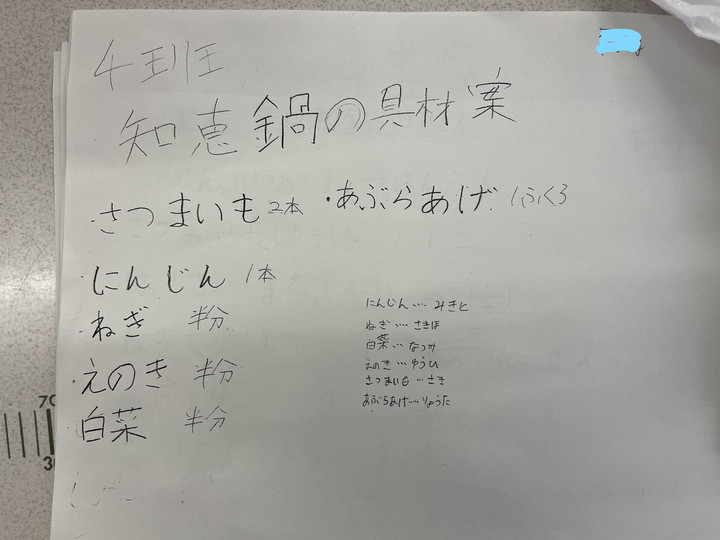 4班
知恵鍋の具材案
・さつまいも 2本 ・あぶらあげ 1ふくろ
・にんじん 1本
・ねぎ 半分
・えのき 半分
・白菜 半分
にんじん…みきと
ねぎ…さきほ
白菜…なつみ
えのき…ゆうひ
さつまいも…さき
あぶらあげ…りょうた
70